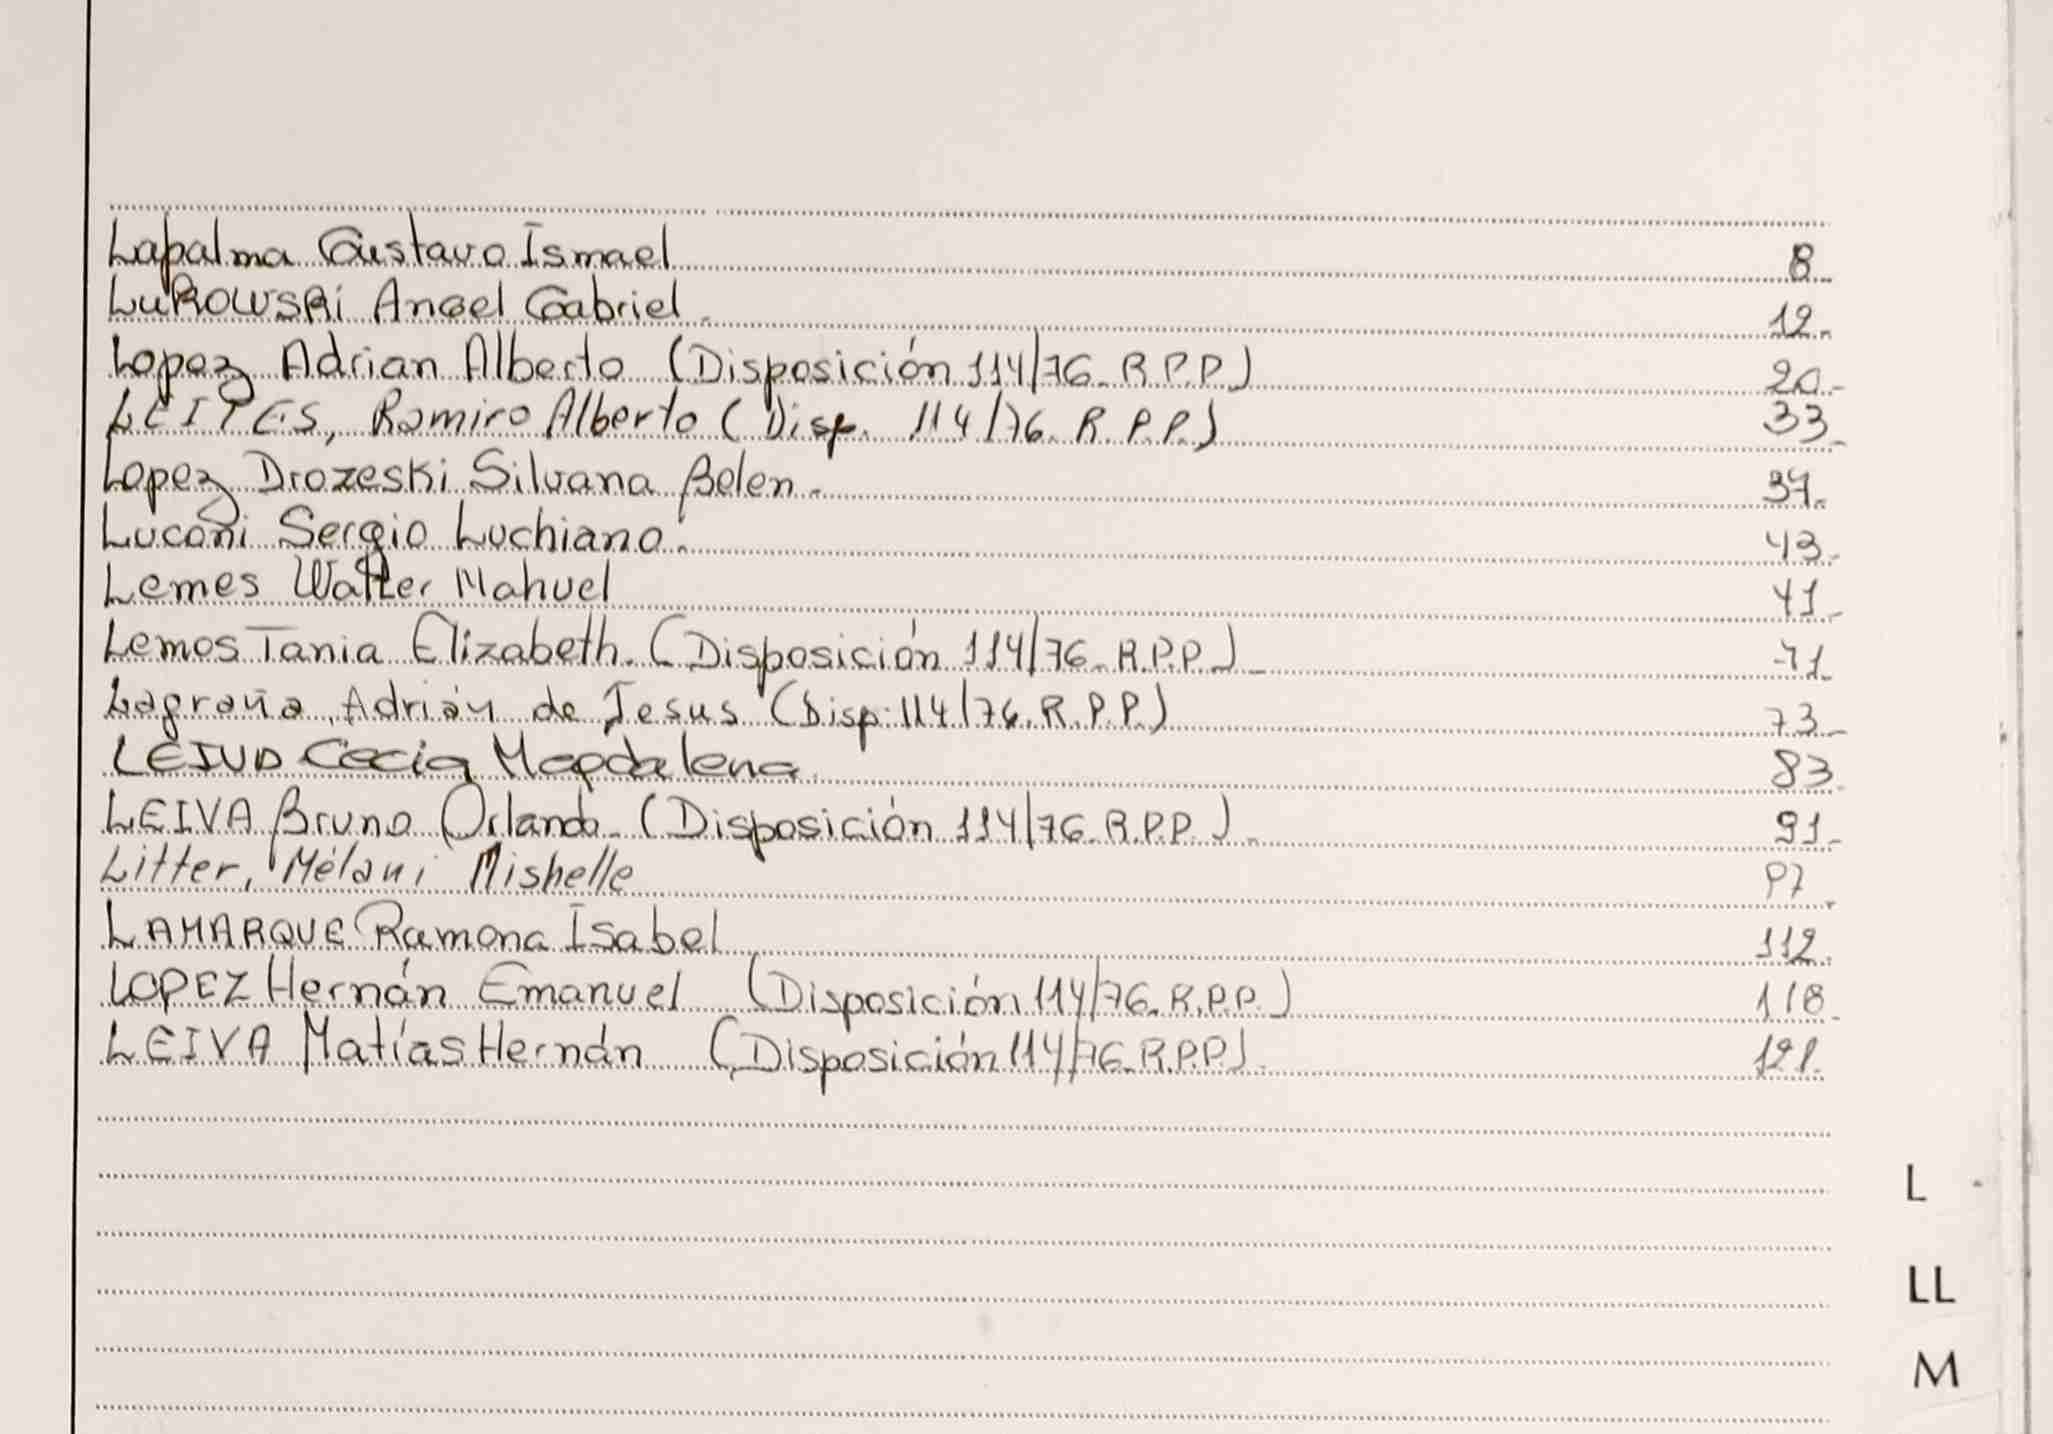 Lapalma Gustavo Ismael 8.
LUKOWSKI Angel Gabriel. 12.
Lopez Adrian Alberto (Disposición 114/76. R.P.P.) 20.
LEITES, Ramiro Alberto (Disp. 114/76. R.P.P.) 33
Lopez Drozeski Silvana Belen. 37.
Luconi Sergio Luchiano. 43.
Lemes Walter Nahuel 41
Lemos Tania Elizabeth. (Disposición 114/76. R.P.P.) 71
Lagraña, Adrián de Jesus (Disp. 114/76. R.P.P.) 73
Magdalena 83
LEIVA Bruno Orlando. (Disposición 114/76. R.P.P.). 91.
Litter, Mélani Mishelle 97
LAMARQUE Ramona Isabel 112.
LOPEZ Hernán Emanuel (Disposición 114/76. R.P.P.) 118
LEIVA Matías Hernán (Disposición 114/76. R.P.P.). 121.
L
LL
M